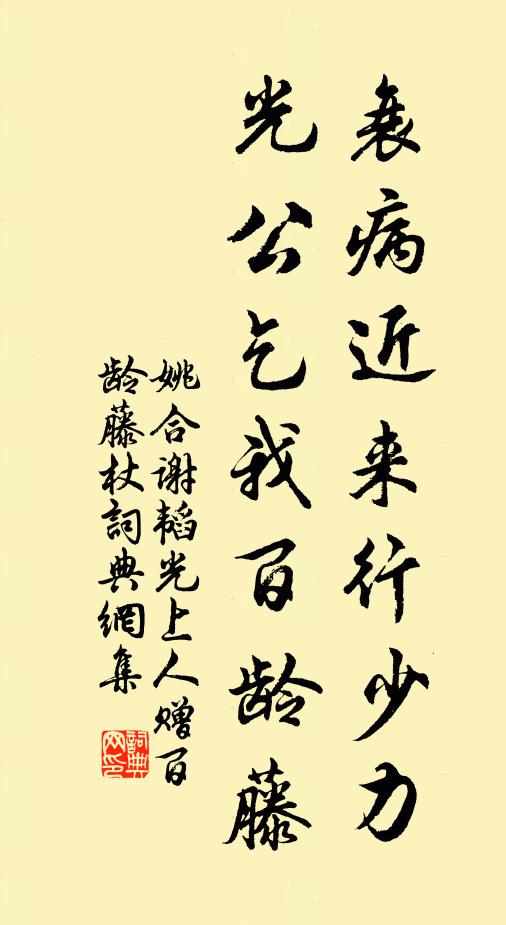 衰病近来行少力
光公乞我百龄藤
姚合谢韬光上人赠百
龄藤杖詞典網集
詞典
网印